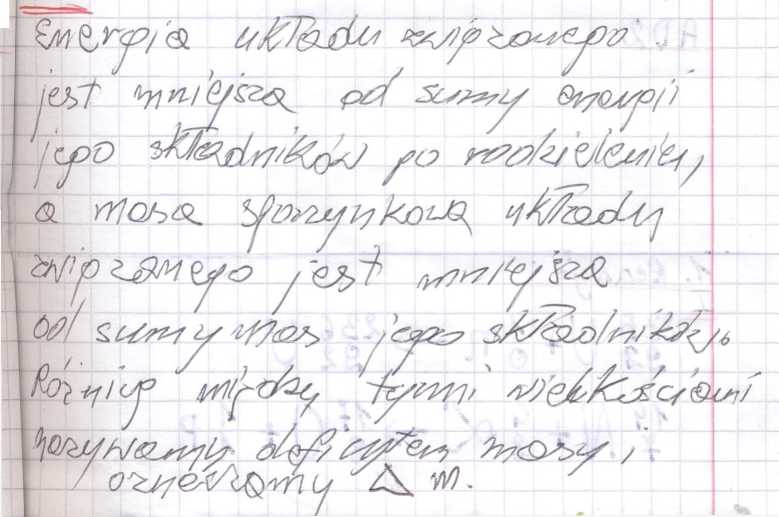 Energia układu związanego
jest mniejsza od sumy energii
jego składników po rodzieleniu,
a masa spoczynkowa układu
związanego jest mniejsza
od sumy mas jego składników.
Różnicę między tymi wielkościami
nazywamy deficytem masy i
oznaczamy Δ m.